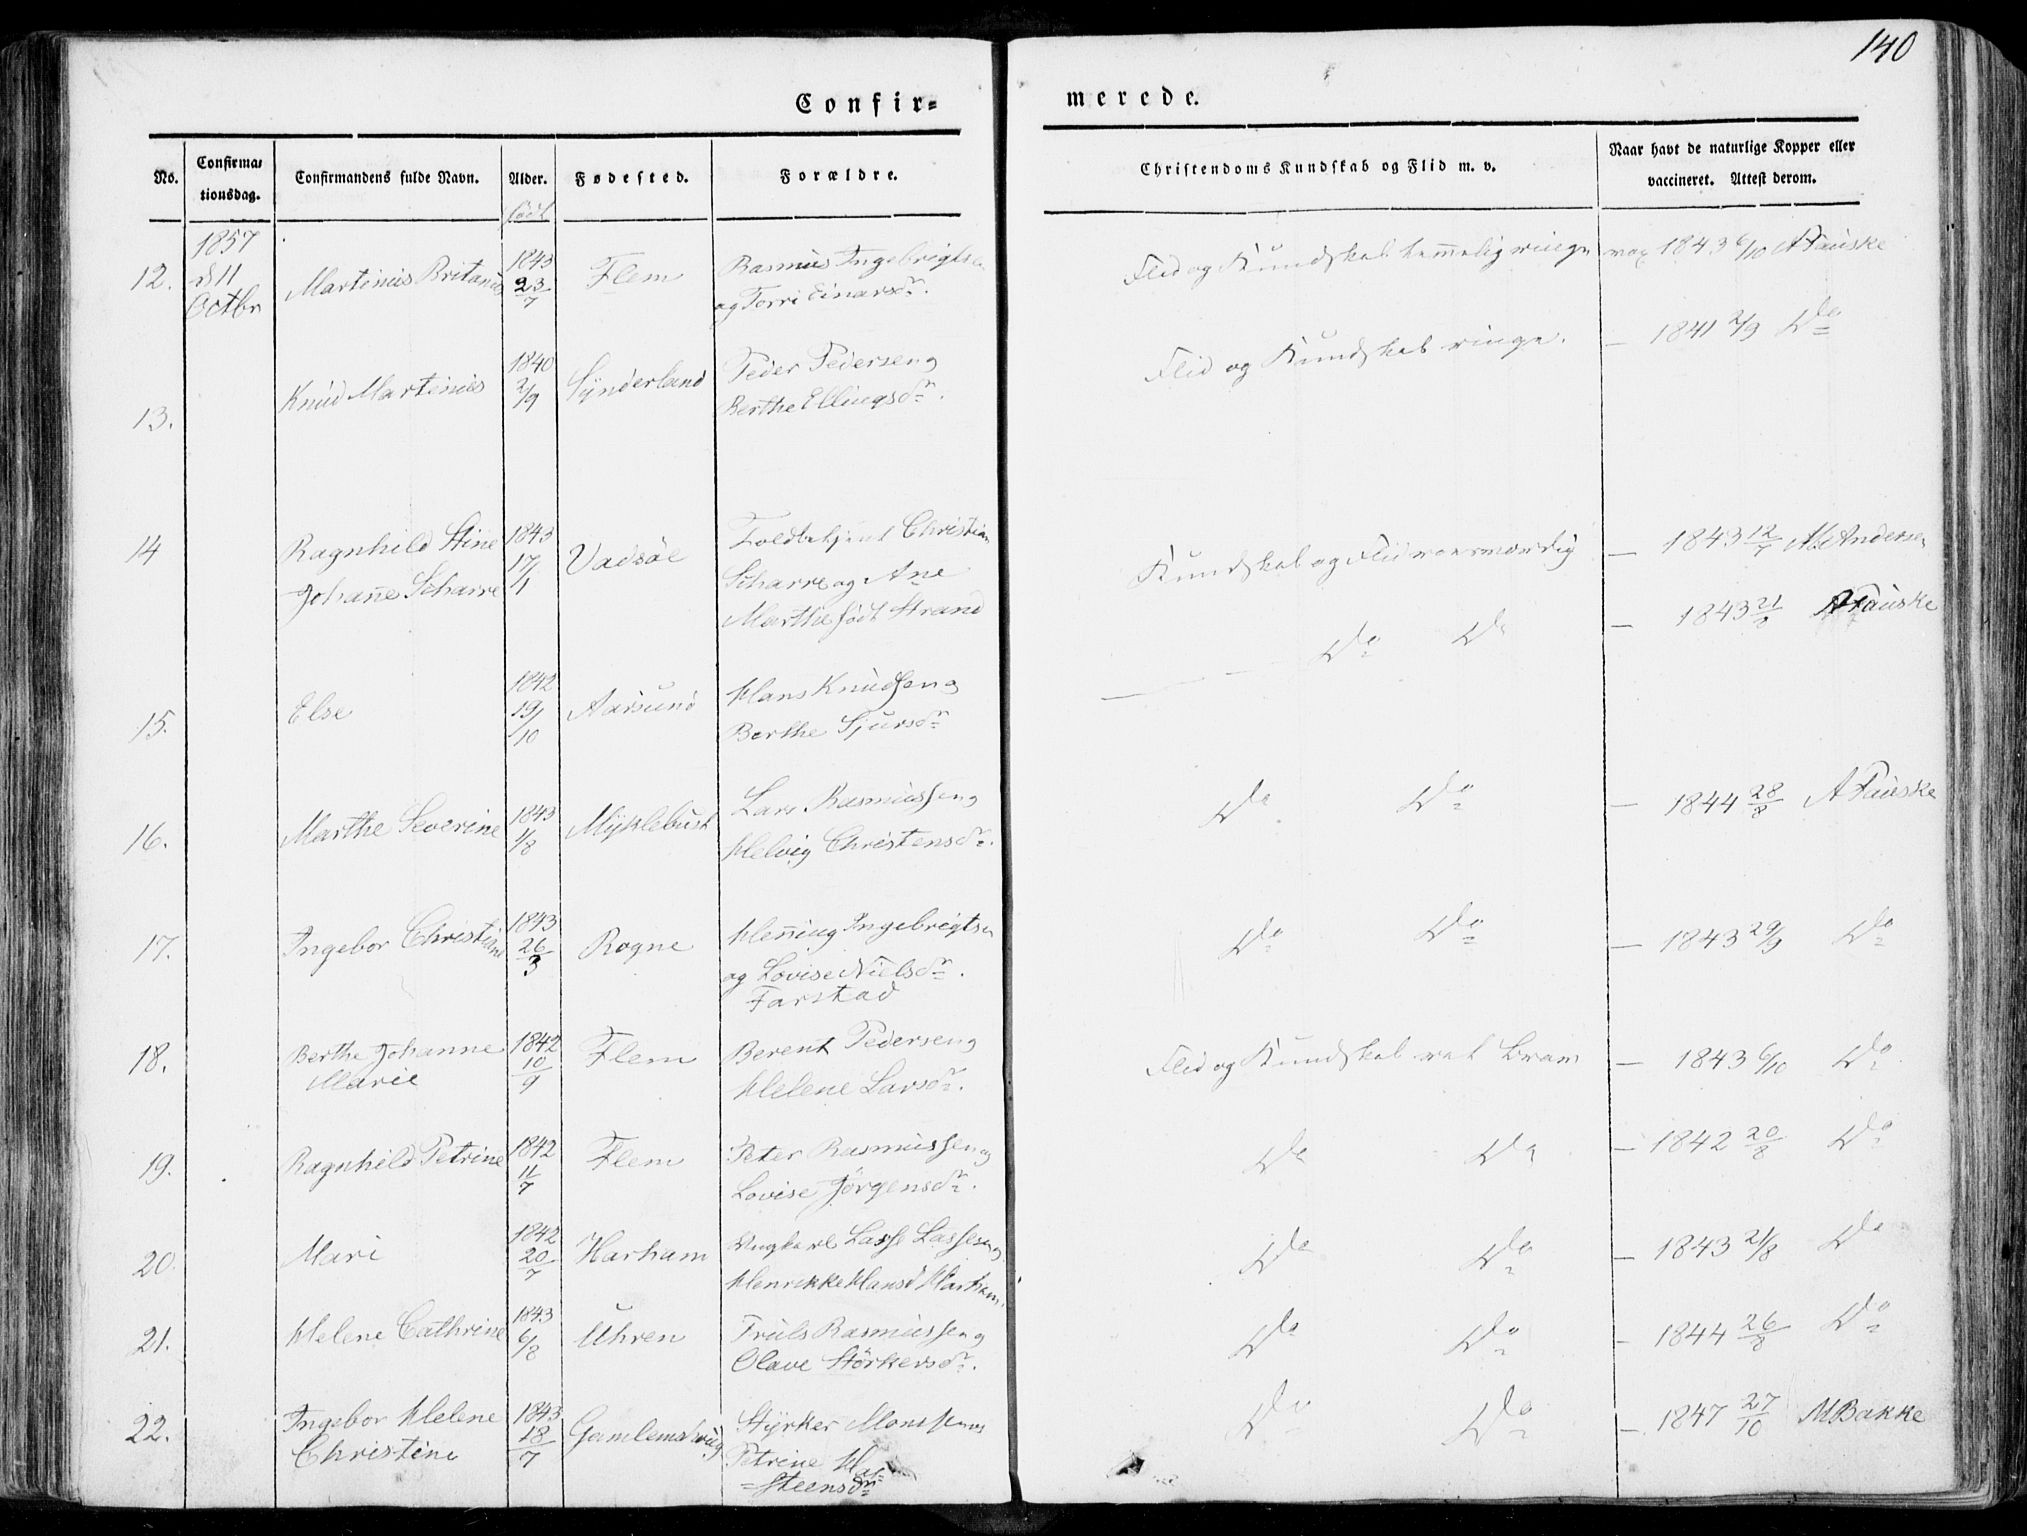 140
Confir= merede.
No. Confirmationsdag. Confirmandens fulde Navn. Alder. Fødested. Forældre. Christendoms Kundskab og Flid m. v. Naar havt de naturlige Kopper eller vaccineret. Attest derom.
født
1857
12. d 11 Octbr Martinus Britanus 1843 23/7 Flem Rasmus Ingebrigtsen
og Torri Einarsdr. Flid og Kundskab temmelig ringe vax 1843 6/10 A Fauske
13. Knud Martinus 1840 2/9 Synderland Peder Pedersen og
Berthe Ellingsdr. Flid og Kundskab ringe. — 1841 2/9 Do
14 Ragnhild Stine
Johanne Scharre 1843 17/1 Vadsöe Toldbetjent Christian
Scharre og Ane
Marthe född Strand Kundskab og Flid — 1843 12/7 Andersen
15. Else 1842 19/10 Aarsund Hans Knudsen og
Berthe Sjursdr Do Do — 1843 21/8 A Fauske
16. Marthe Severine 1843 1/8 Myklebust Lars Rasmussen og
Helvig Christensdr. Do Do — 1844 28/8 A Fauske
17. Ingebor Christiane 1843 26/3 Rogne Henning Ingebrigtsen
og Lovise Nielsdr.
Farstad Do Do — 1843 29/9 Do
18. Berthe Johanne
Marie 1842 10/9 Flem Berent Pedersen og
Helene Larsdr. Flid og Kundskab ret bram — 1843 6/10 Do
19. Ragnhild Petrine 1842 11/7 Flem Peter Rasmussen og
Lovise Jörgensdr. Do Do — 1842 20/8 Do
20. Mari 1842 20/7 Harham Ungkarl Lasse Lassesen og
Henrikke Hansd Harham. Do Do — 1843 21/8 Do
21. Helene Cathrine 1843 6/8 Uhren Truls Rasmussen og
Olave Störkersdr. Do Do — 1844 26/8 Do
22. Ingebor Helene
Christine 1843 18/7 Gamlemshoug Styrker Monssen og
Petrine Hal=
=steensdr Do Do — 1847 27/10 M Bakke